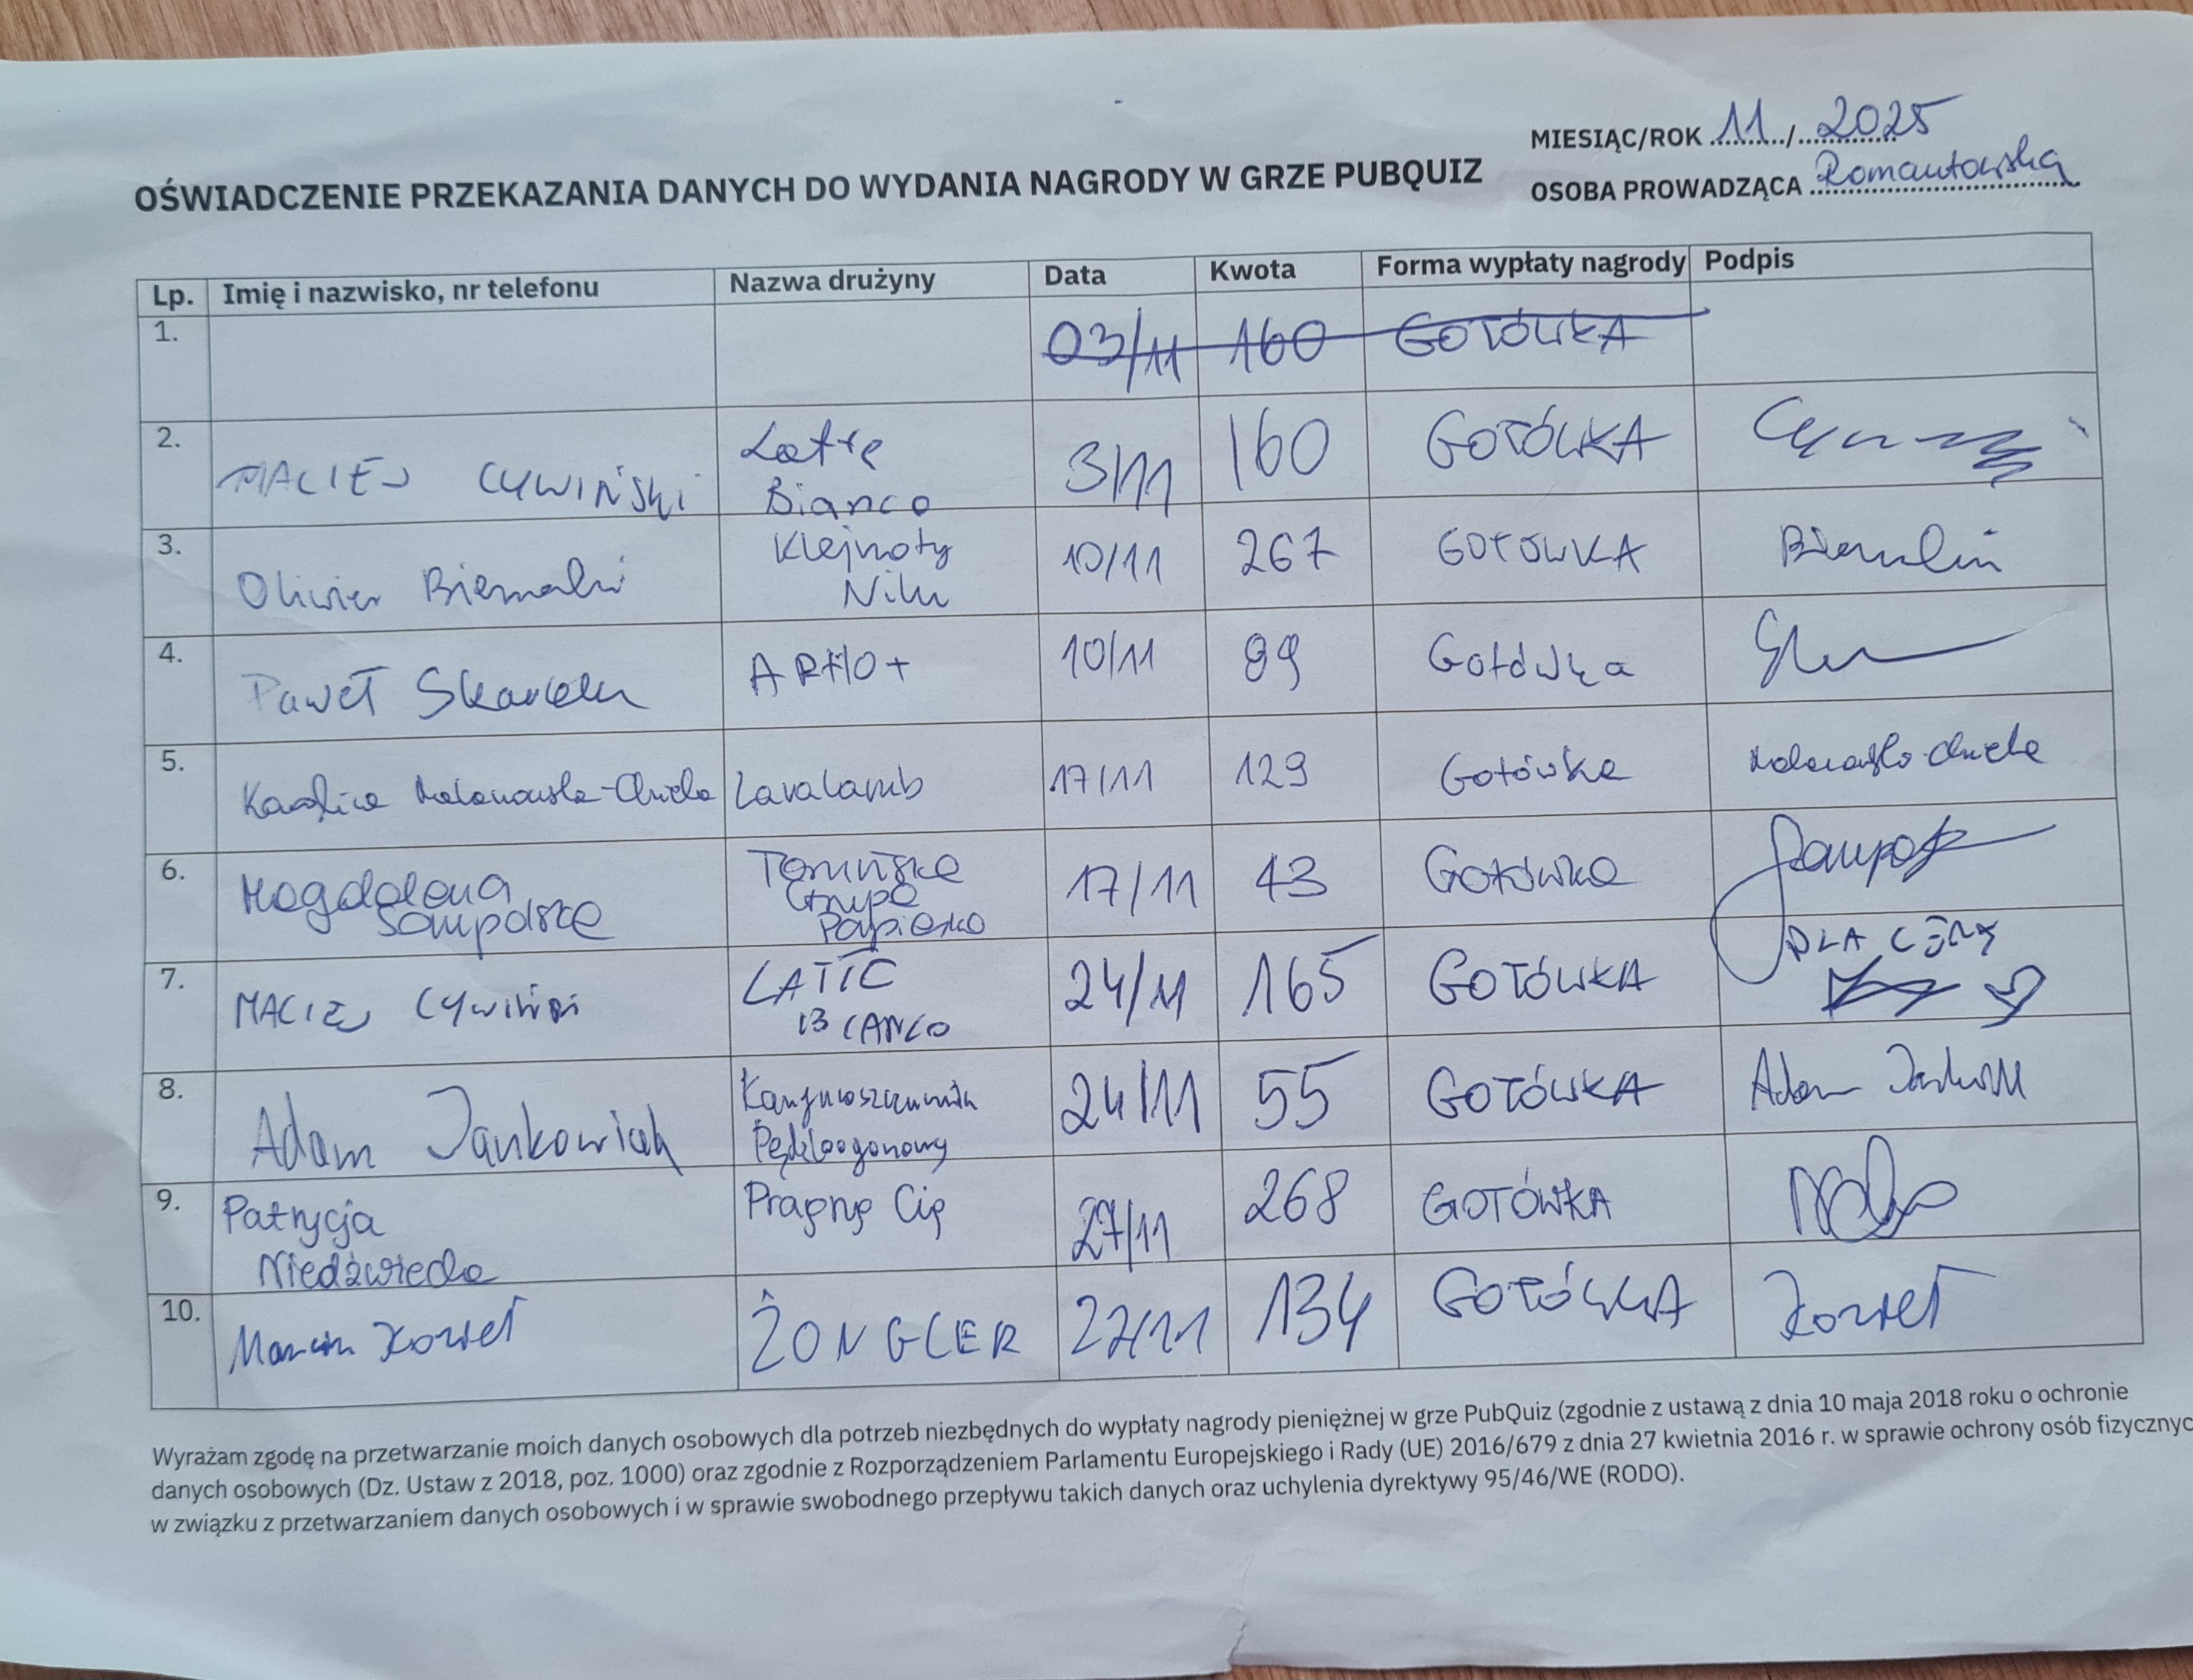 MIESIĄC/ROK 11 / 2025
OŚWIADCZENIE PRZEKAZANIA DANYCH DO WYDANIA NAGRODY W GRZE PUBQUIZ
OSOBA PROWADZĄCA Romantowska
Lp. Imię i nazwisko, nr telefonu Nazwa drużyny Data Kwota Forma wypłaty nagrody Podpis
1. 03/11 160 GOTÓWKA
2. MACIEJ CYWIŃSKI Latte Bianco 3/11 160 GOTÓWKA
3. Oliwier Klejnoty Nilu 10/11 267 GOTÓWKA
4. Paweł ARHO+ 10/11 89 Gotówka
5. Karolina Lavalamb 17/11 129 Gotówka
6. Magdalena Sampolska Toruńska Grupa Papieska 17/11 43 Gotówka
7. MACIEJ CYWIŃSKI LATTE BIANCO 24/11 165 GOTÓWKA DLA
8. Adam Jankowiak Pędzloogonowy 24/11 55 GOTÓWKA Adam
9. Patrycja Niedźwiecka Pragnę Cię 27/11 268 GOTÓWKA
10. Marcin Kozieł ŻONGLER 27/11 134 GOTÓWKA Kozieł
Wyrażam zgodę na przetwarzanie moich danych osobowych dla potrzeb niezbędnych do wypłaty nagrody pieniężnej w grze PubQuiz (zgodnie z ustawą z dnia 10 maja 2018 roku o ochronie
danych osobowych (Dz. Ustaw z 2018, poz. 1000) oraz zgodnie z Rozporządzeniem Parlamentu Europejskiego i Rady (UE) 2016/679 z dnia 27 kwietnia 2016 r. w sprawie ochrony osób fizycznyc
w związku z przetwarzaniem danych osobowych i w sprawie swobodnego przepływu takich danych oraz uchylenia dyrektywy 95/46/WE (RODO).